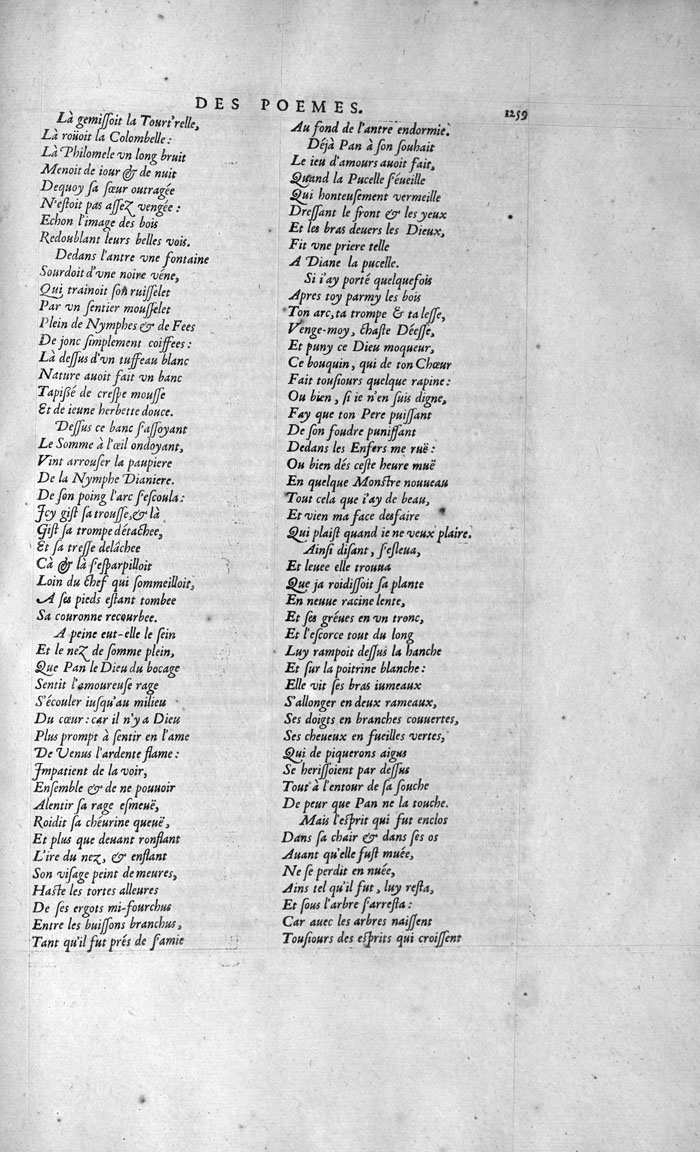 DES POEMES.
1259
Là gemiſſoit la Tourt'relle,
Là roüoit la Colombelle:
Là Philomele vn long bruit
Menoit de iour & de nuit
Dequoy ſa ſœur outragée
N'eſtoit pas aſſez vengée:
Echon l'image des bois
Redoublant leurs belles vois.
Dedans l'antre vne fontaine
Sourdoit d'vne noire véne,
Qui trainoit ſon ruiſſelet
Par vn ſentier mouſſelet
Plein de Nymphes & de Fees
De jonc ſimplement coiffées:
Là deſſus d'vn tuffeau blanc
Nature auoit fait vn banc
Tapißé de creſpe mouſſe
Et de ieune herbette douce.
Deſſus ce banc ſ'aſſoyant
Le Somme à l'œil ondoyant,
Vint arrouſer la paupiere
De la Nymphe Dianiere.
De ſon poing l'arc ſ'eſcoula:
Icy giſt ſa trouſſe, & là
Giſt ſa trompe détachee,
Et ſa treſſe delâchee
Cà & là ſ'eſparpilloit
Loin du chef qui ſommeilloit,
A ſes pieds eſtant tombee
Sa couronne recourbee.
A peine eut-elle le ſein
Et le nez de ſomme plein,
Que Pan le Dieu du bocage
Sentit l'amoureuſe rage
S'écouler iuſqu'au milieu
Du cœur: car il n'y a Dieu
Plus prompt à ſentir en l'ame
De Venus l'ardente flame:
Impatient de la voir,
Enſemble & de ne pouuoir
Alentir ſa rage eſmeuë,
Roidit ſa chéurine queuë,
Et plus que deuant ronflant
L'ire du nez, & enflant
Son viſage peint de meures,
Haſte les tortes alleures
De ſes ergots mi-fourchus
Entre les buiſſons branchus,
Tant qu'il fut prés de ſ'amie
Au fond de l'antre endormie.
Déjà Pan à ſon ſouhait
Le ieu d'amours auoit fait,
Quand la Pucelle ſ'éueille
Qui honteuſement vermeille
Dreſſant le front & les yeux
Et les bras deuers les Dieux,
Fit vne priere telle
A Diane la pucelle.
Si i'ay porté quelquefois
Apres toy parmy les bois
Ton arc, ta trompe & ta leſſe,
Venge-moy, chaſte Déeſſe,
Et puny ce Dieu moqueur,
Ce bouquin, qui de ton Chœur
Fait touſiours quelque rapine:
Ou bien, ſi ie n'en ſuis digne,
Fay que ton Pere puiſſant
De ſon foudre puniſſant
Dedans les Enfers me ruë:
Ou bien dés ceſte heure muë
En quelque Monſtre nouueau
Tout cela que i'ay de beau,
Et vien ma face desfaire
Qui plaiſt quand ie ne veux plaire.
Ainſi diſant, ſ'eſleua,
Et leuee elle trouua
Que ja roidiſſoit ſa plante
En neuue racine lente,
Et ſes gréues en vn tronc,
Et l'eſcorce tout du long
Luy rampoit deſſus la hanche
Et ſur la poitrine blanche:
Elle vit ſes bras iumeaux
S'allonger en deux rameaux,
Ses doigts en branches couuertes,
Ses cheueux en fueilles vertes,
Qui de piquerons aigus
Se heriſſoient par deſſus
Tout à l'entour de ſa ſouche
De peur que Pan ne la touche.
Mais l'eſprit qui fut enclos
Dans ſa chair & dans ſes os
Auant qu'elle fuſt muée,
Ne ſe perdit en nuée,
Ains tel qu'il fut, luy reſta,
Et ſous l'arbre ſ'arreſta:
Car auec les arbres naiſſent
Touſiours des eſprits qui croiſſent